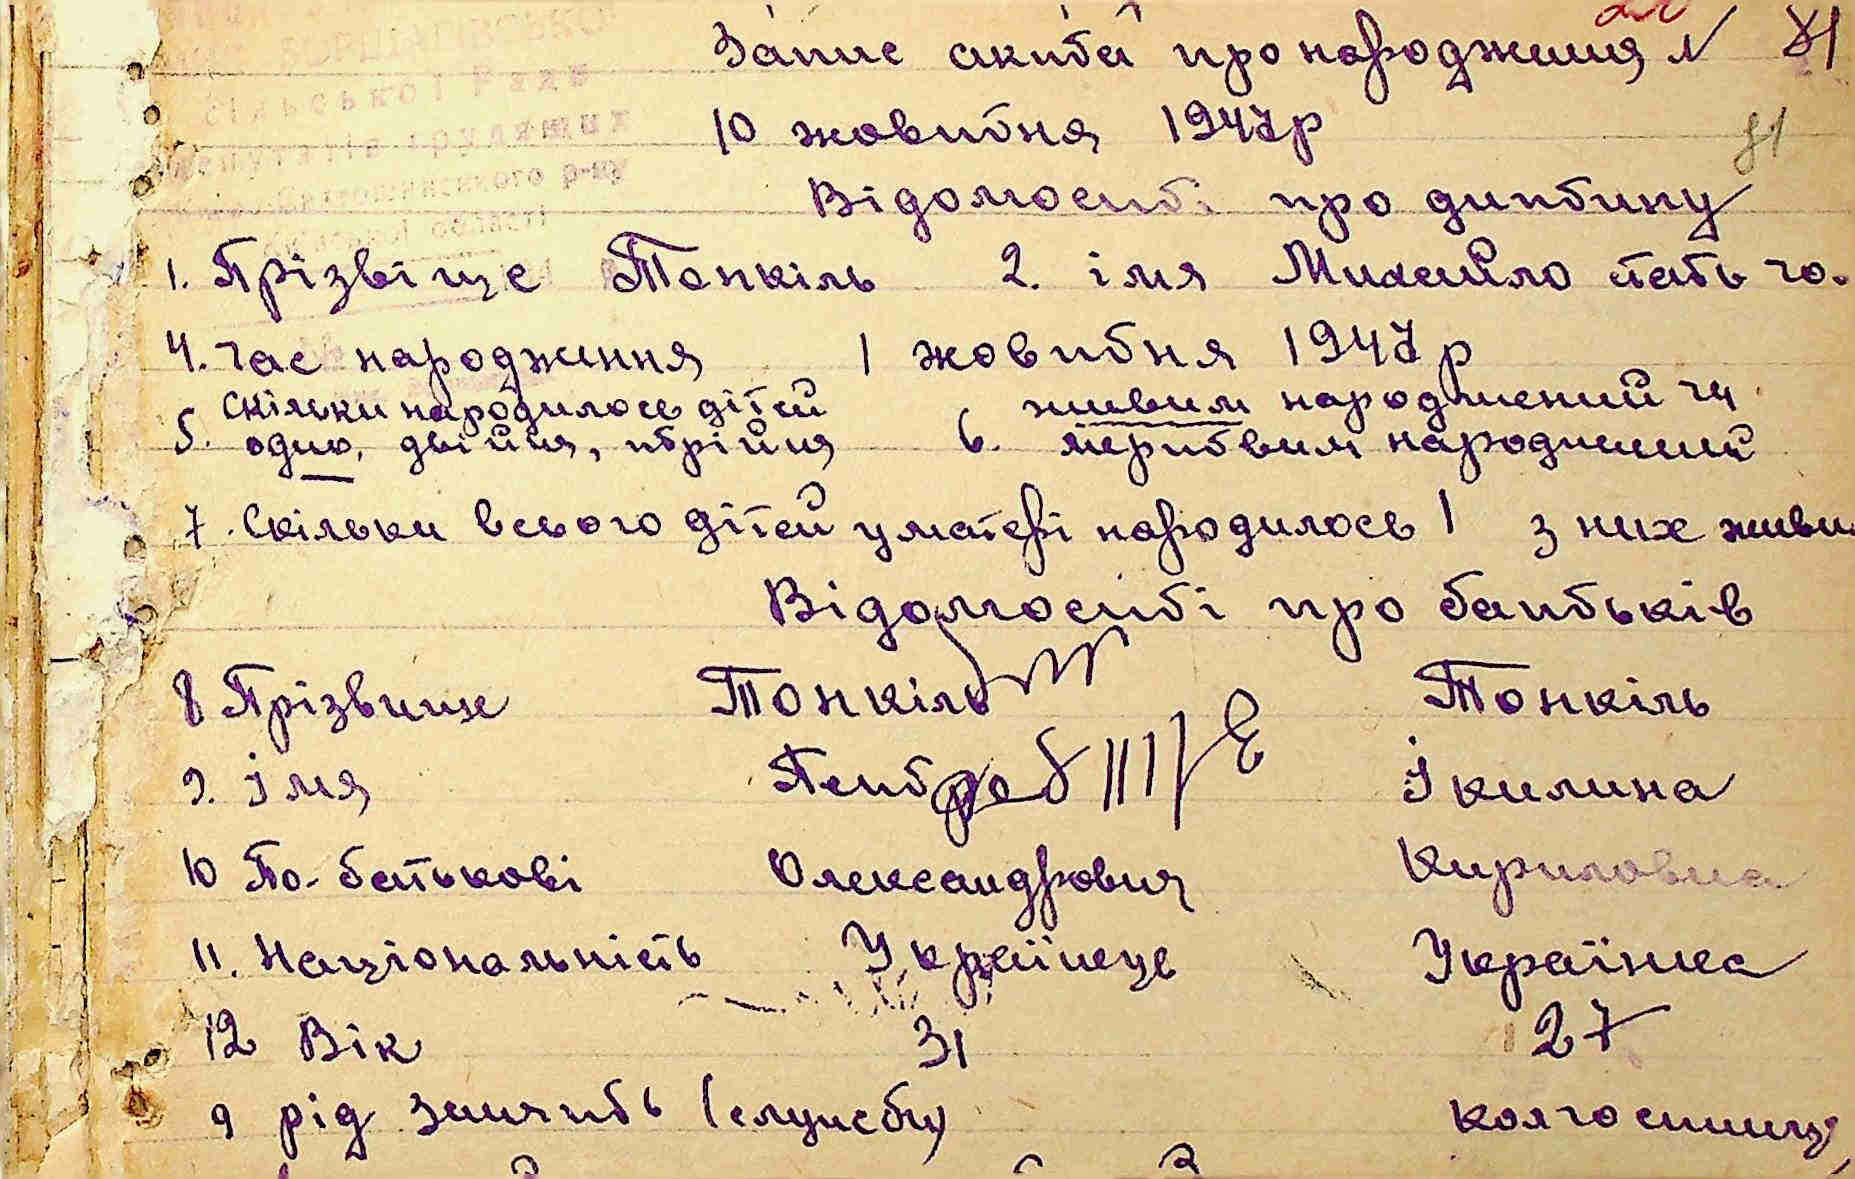 БОРЩАГІВСЬКО
сільської Ради
депутатів трудящих
Святошинського р-ну
області
Запис актів про народження N 81
10 жовтня 1947р
81
Відомості про дитину
1. Прізвіще Тонкіль 2. імя Михайло стать чо.
4. час народження 1 жовтня 1947р
5. скільки народилось дітей одно, двійня, трійня 6. живим народжений чи мертвим народжений
7. Скільки всього дітей у матері народилось 1 з них живи
Відомості про батьків
8 Прізвище Тонкіль Тонкіль
9. імя Петро Їкилина
10 По-батькові Олександрович Кириловна
11. Національність Українець Українка
12 Вік 31 27
9 рід занять (служби) колгоспниця